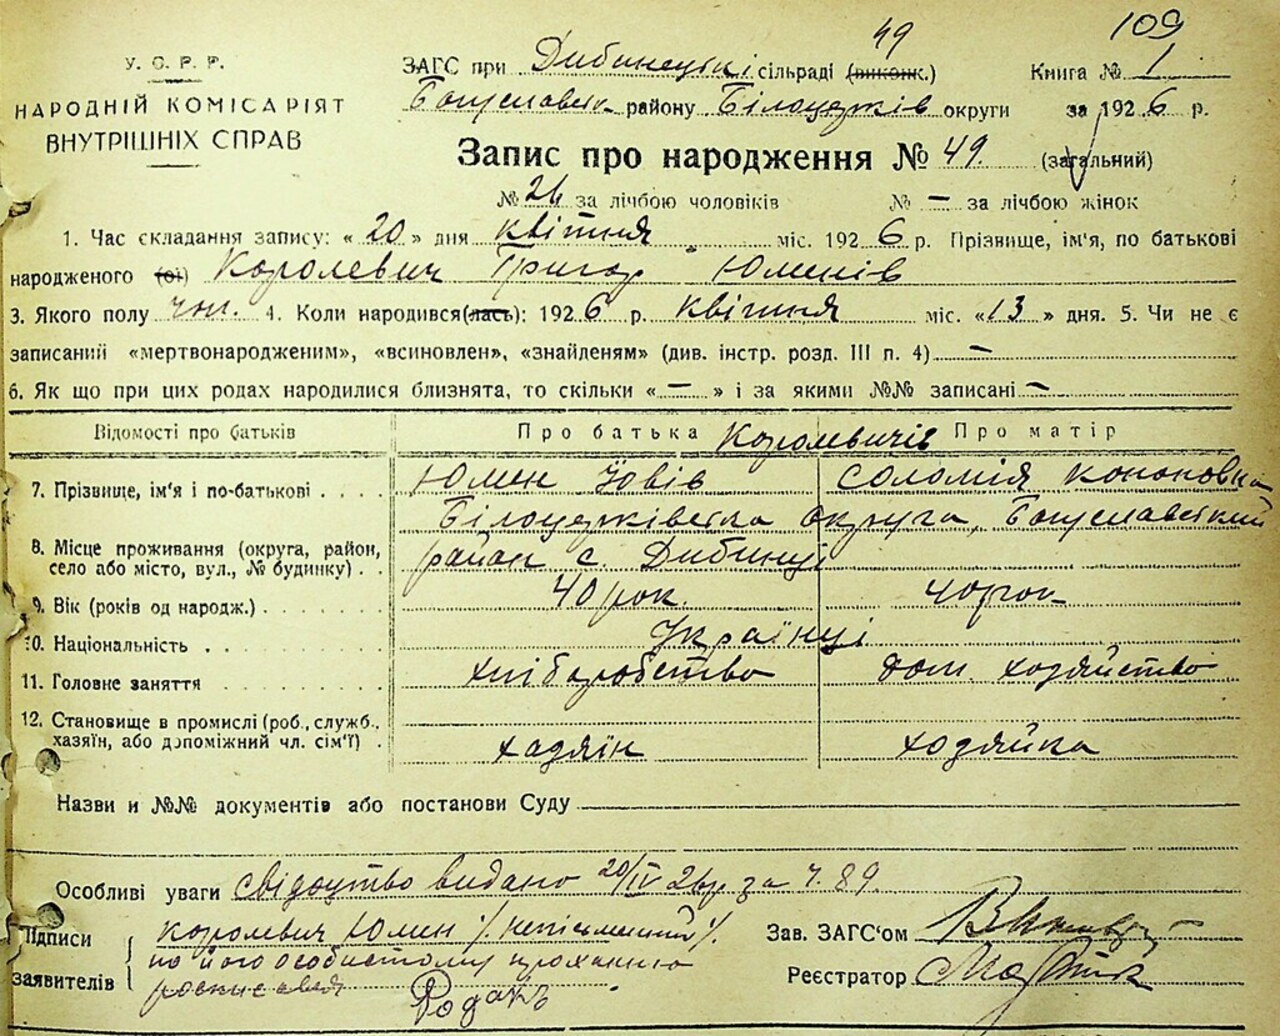 109
49
У. С. Р. Р.
НАРОДНІЙ КОМІСАРІЯТ
ВНУТРІШНІХ СПРАВ
ЗАГС при Дибинецькі сільраді (виконк.) Книга № 1
Богуславськ району Білоцерків округи за 1926 р.
Запис про народження № 49. (загальний)
№ 26 за лічбою чоловіків № — за лічбою жінок
1. Час складання запису: « 20 » дня квітня міс. 1926 р. Прізвище, ім'я, по батькові
народженого (ої) Королевич Григор Юменів
3. Якого полу чол. 4. Коли народився(лась): 1926 р. квітня міс. «13» дня. 5. Чи не є
записаний «мертвонародженим», «всиновлен», «знайденям» (див. інстр. розд. III п. 4) —
6. Як що при цих родах народилися близнята, то скільки « — » і за якими №№ записані —
Відомості про батьків Про батька Королевичів Про матір
7. Прізвище, ім'я і по-батькові Юмен Йовів Соломія Кононовна
Білоцерківська округа, Богуславський
8. Місце проживання (округа, район, район с. Дибинці
село або місто, вул., № будинку)
9. Вік (років од народж.) 40 рок. 40 рок
10. Національність Українці
11. Головне заняття хліборобство дом. хозяйство
12. Становище в промислі (роб., служб.,
хазяїн, або допоміжний чл. сім'ї) хазяїн хозяйка
Назви и №№ документів або постанови Суду
Особливі уваги свідоцтво видано 20/IV 26р за ч. 89.
Підписи Королевич Юмен /неписьменний/. Зав. ЗАГС'ом
заявителів по його особистому проханню Реєстратор
Родакъ